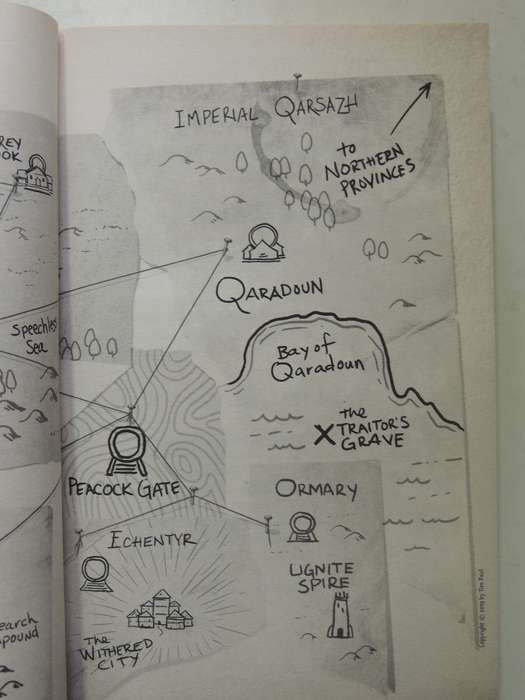 IMPERIAL QARSAZH
to
NORTHERN
PROVINCES
QARADOUN
Speechless
Sea
Bay of
Qaradoun
X the
TRAITOR'S
GRAVE
PEACOCK GATE
ORMARY
ECHENTYR
LIGNITE
SPIRE
The
WITHERED
CITY
Copyright © 2019 by Tim Paul